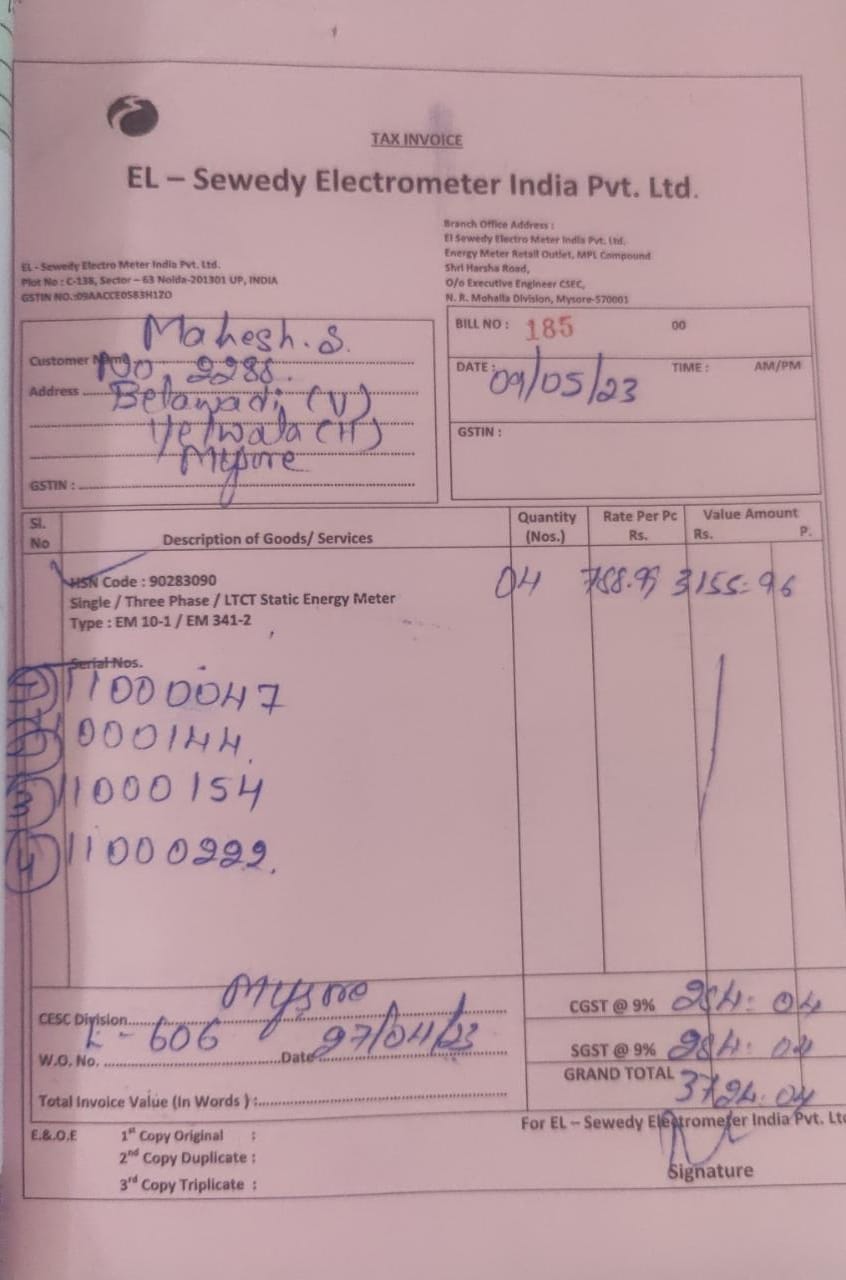 TAX INVOICE
EL – Sewedy Electrometer India Pvt. Ltd.
EL - Sewedy Electro Meter India Pvt. Ltd.
Plot No : C-138, Sector – 63 Noida-201301 UP, INDIA
GSTIN NO.:09AACCE0583H1ZO
Branch Office Address :
El Sewedy Electro Meter India Pvt. Ltd.
Energy Meter Retail Outlet, MPL Compound
Shri Harsha Road,
O/o Executive Engineer CSEC,
N. R. Mohalla Division, Mysore-570001
Customer Name Mahesh. S.
Address No, 2288.
Belawadi, (V)
Yelwala (H)
Mysore
GSTIN :
BILL NO : 185 00
DATE : 09/05/23 TIME : AM/PM
GSTIN :
Sl. No Description of Goods/ Services Quantity (Nos.) Rate Per Pc Rs. Value Amount Rs. P.
HSN Code : 90283090 04 788.99 3155=96
Single / Three Phase / LTCT Static Energy Meter
Type : EM 10-1 / EM 341-2
Serial Nos.
1 11000047
000144.
3 11000154
4 11000222.
CESC Division Mysore
W.O. No. L - 606 Date 27/04/23
Total Invoice Value (In Words ) :
CGST @ 9% 284=04
SGST @ 9% 284=04
GRAND TOTAL 3724.04
E.&.O.E 1st Copy Original :
2nd Copy Duplicate :
3rd Copy Triplicate :
For EL – Sewedy Electrometer India Pvt. Ltd
Signature